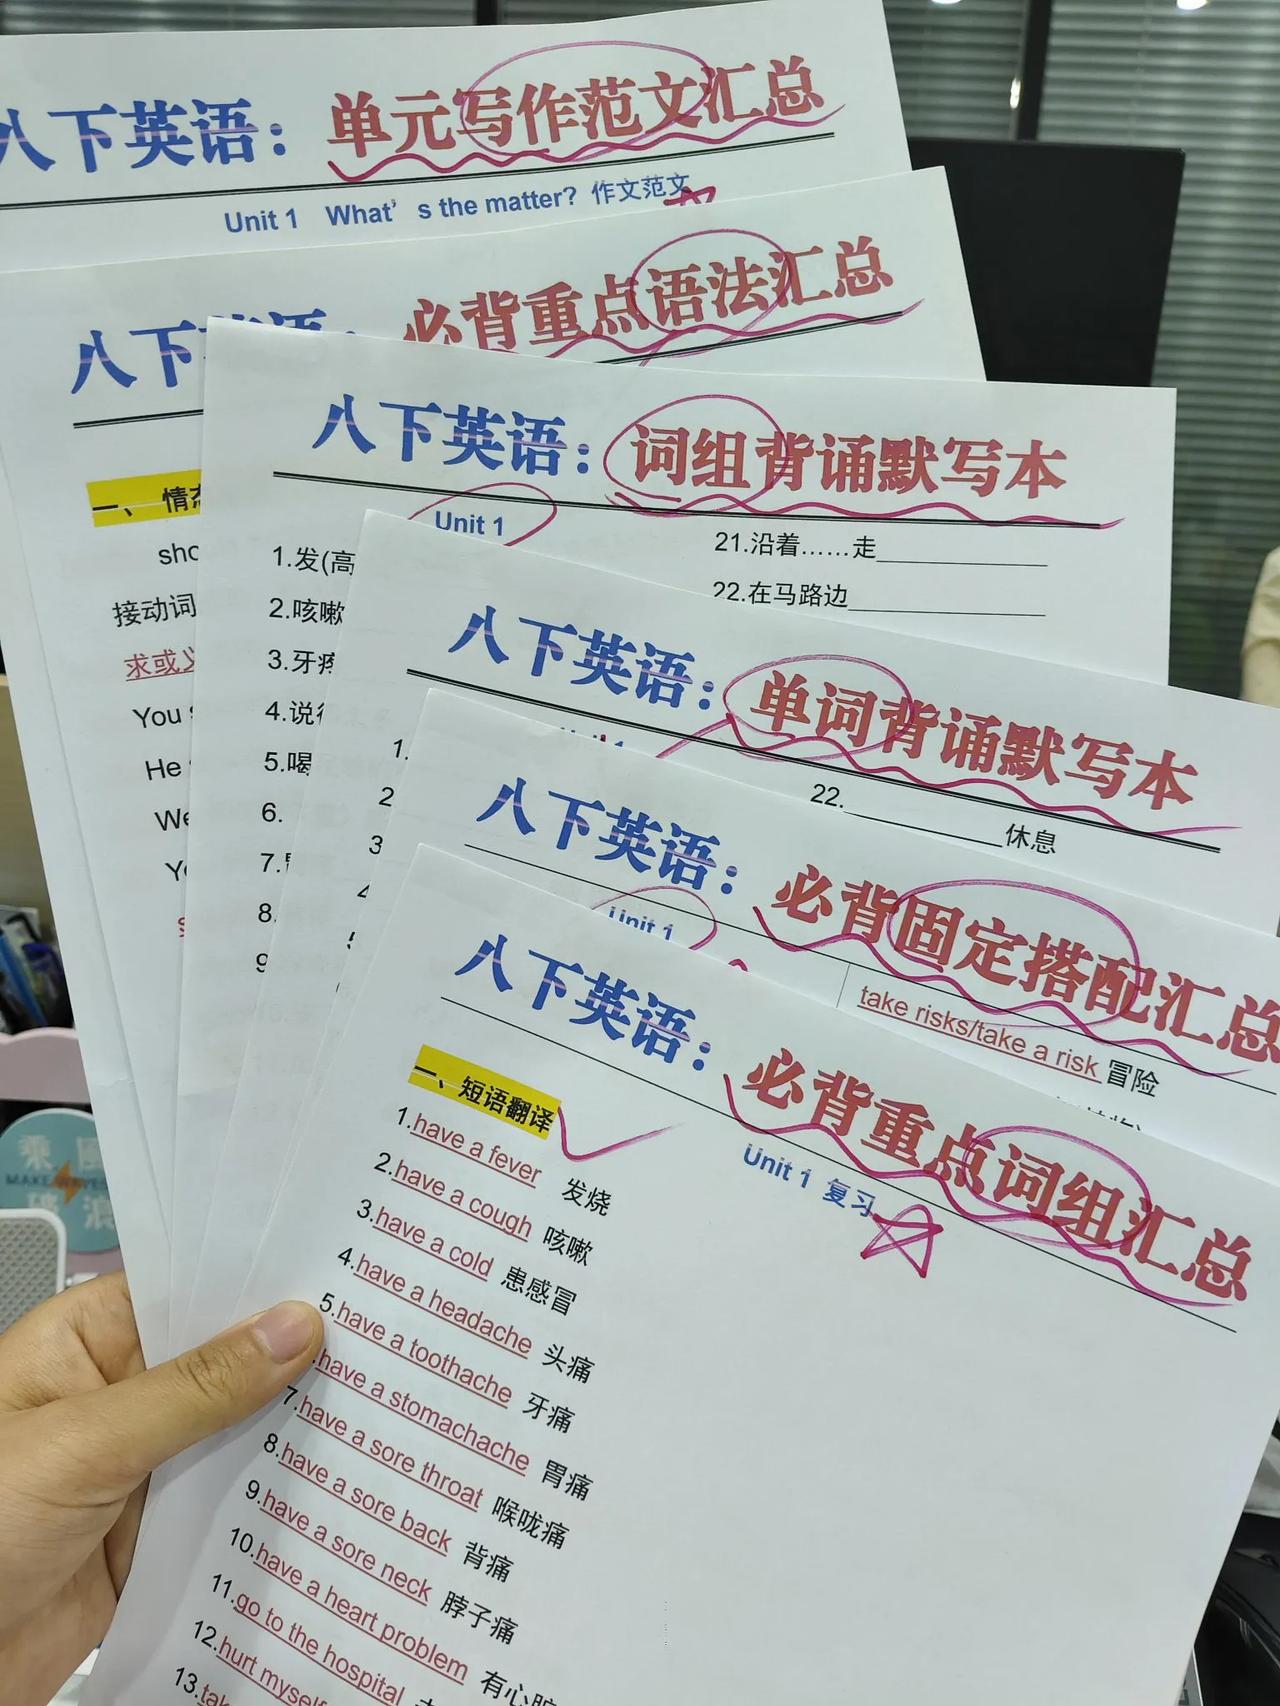 八下英语：单元写作范文汇总
Unit 1 What's the matter? 作文范文
八下英语：必背重点语法汇总
一、情态
接动词
求或义
You
He
We
八下英语：词组背诵默写本
Unit 1
1.发(高
2.咳嗽
3.牙疼
4.说
5.喝
6.
7.
8.
9
21.沿着……走
22.在马路边
八下英语：单词背诵默写本
1.
2
3
4
22.____________休息
八下英语：必背固定搭配汇总
Unit 1
take risks/take a risk 冒险
八下英语：必背重点词组汇总
Unit 1 复习
一、短语翻译
1.have a fever 发烧
2.have a cough 咳嗽
3.have a cold 患感冒
4.have a headache 头痛
5.have a toothache 牙痛
have a stomachache 胃痛
7.have a sore throat 喉咙痛
8.have a sore back 背痛
9.have a sore neck 脖子痛
10.have a heart problem 有心脏
11.go to the hospital
12.hurt myself
13.tak
乘风
MAKE WAVES
破浪